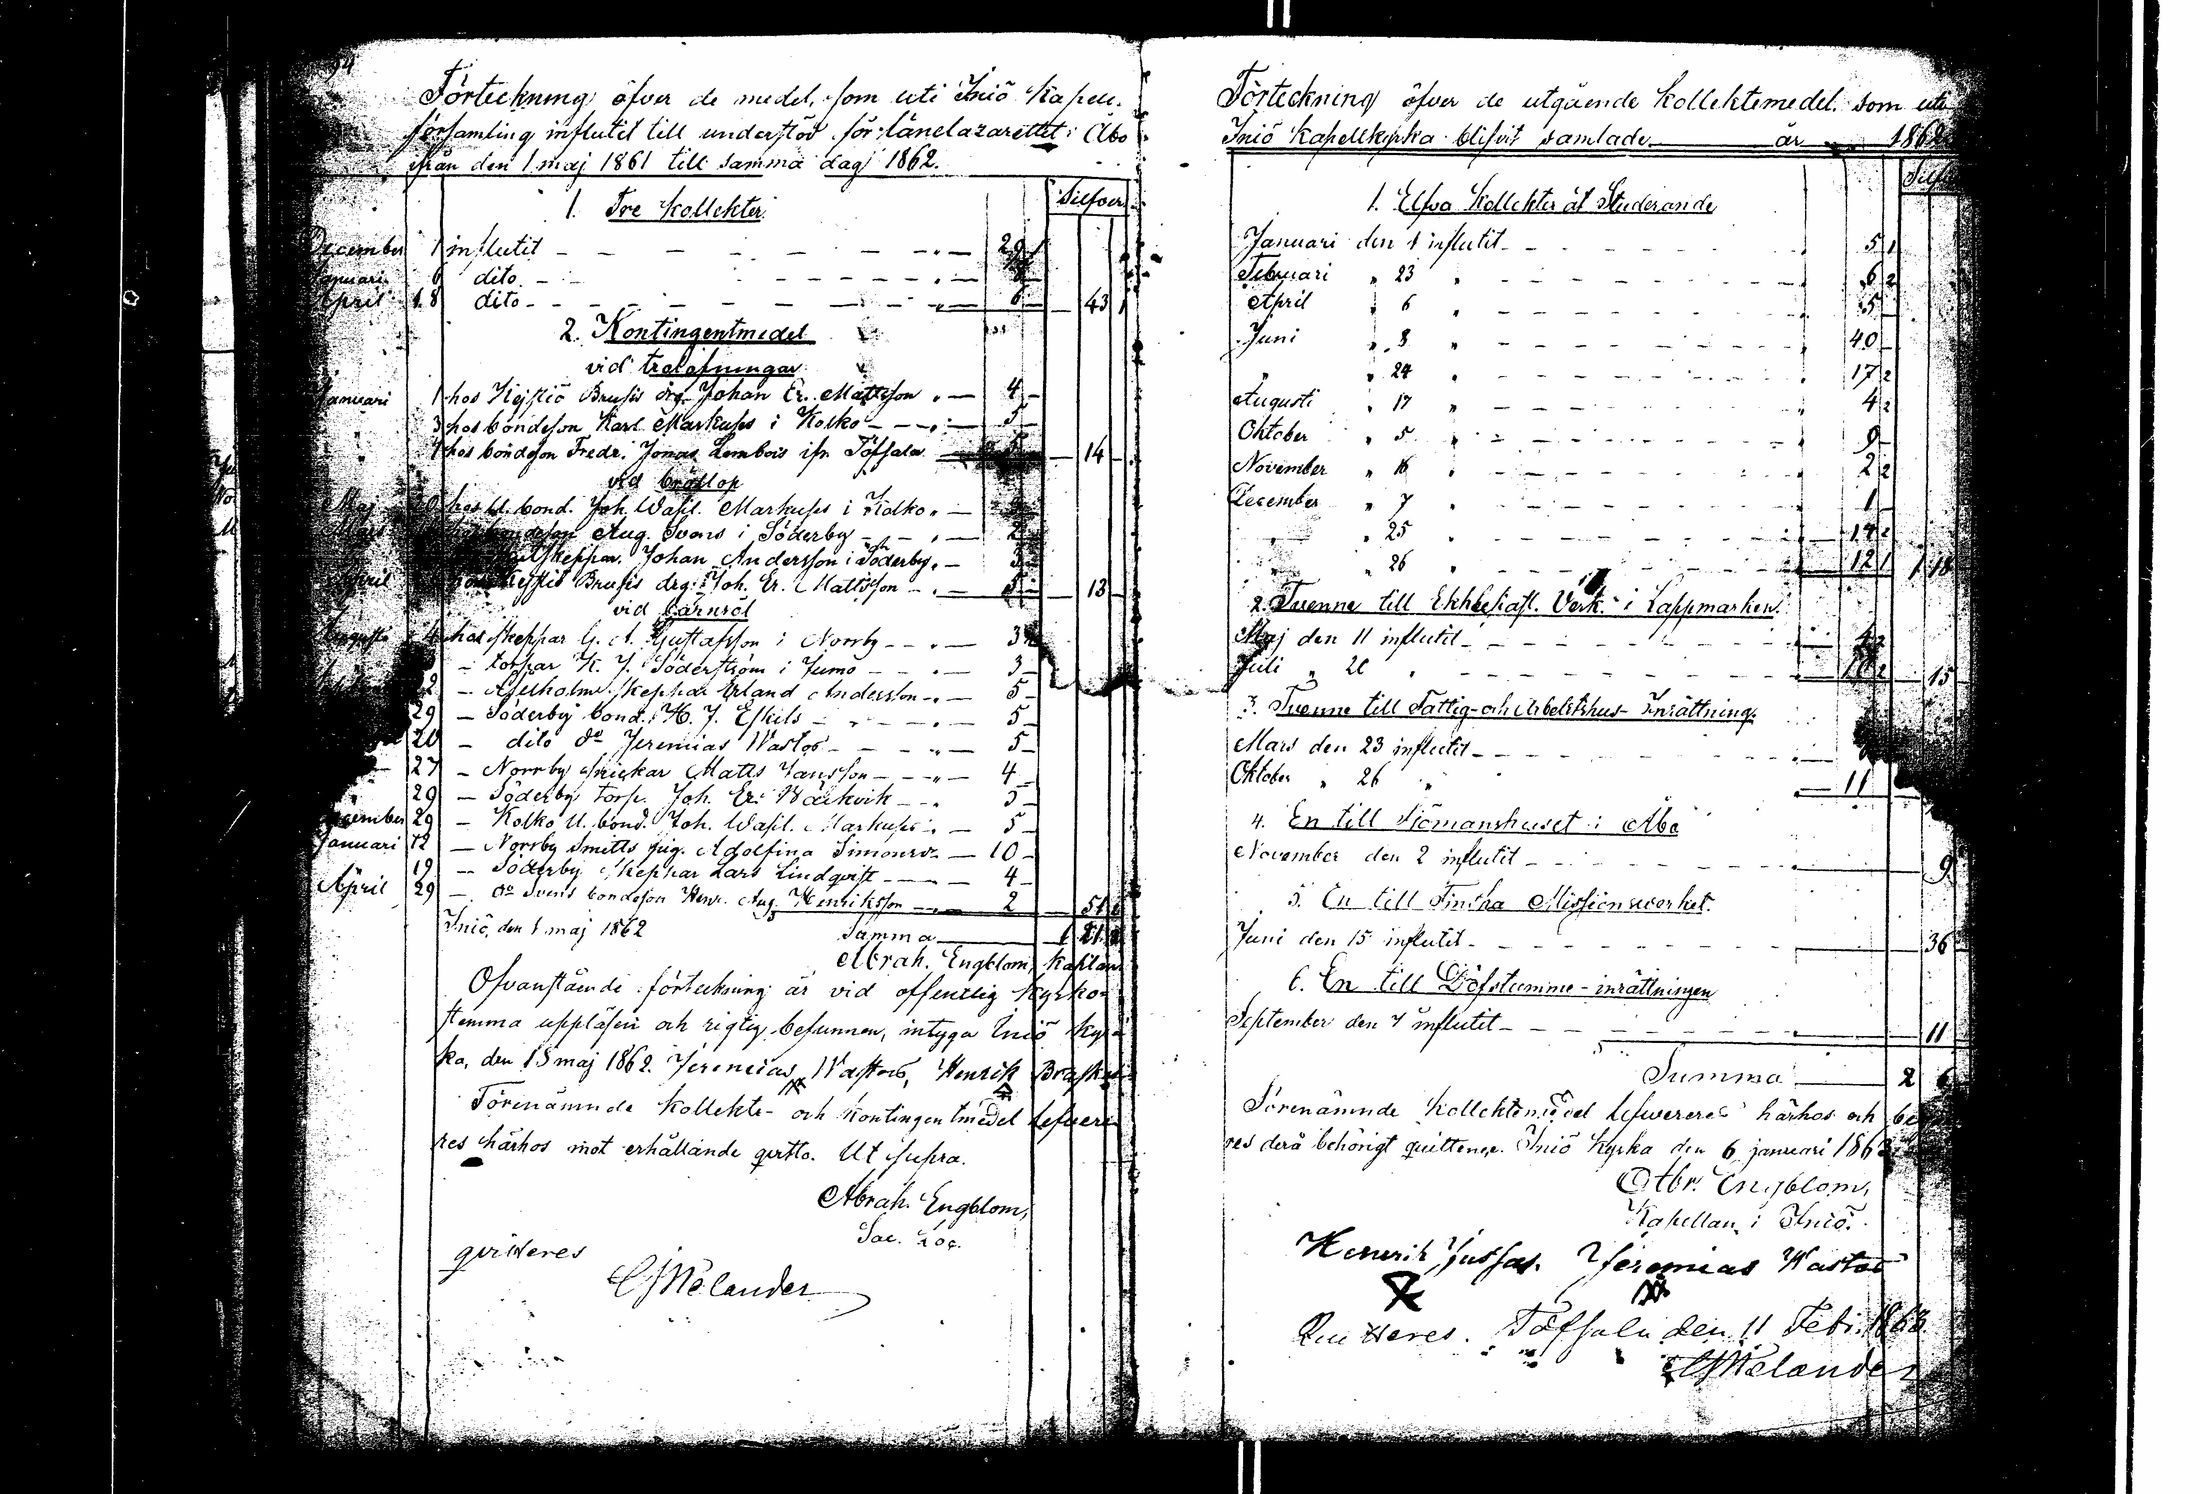 94
Förteckning öfver de medel, som uti Iniö Kapell-
församling influtit till understöd för länelazarettet i Åbo
ifrån den 1 maj 1861 till samma dag 1862.
Silfver
1. Tre Kollekter
December 1 influtit
Januari 6 dito
April 18 dito 6 43
2. Kontingentmedel
vid trolofningar
Januari 1 hos Kejsio Brusis drg. Johan Er. Mattsson 4
3 hos bondeson Karl Markuss i Kolko 5
7 hos bondeson Fredr. Jonas ifr. Töfsala 14
vid bröllop
Maj hos bond. Joh. Wasil. Markuss i Kolko
Aug. Svens i Söderby 2
skeppar. Johan Andersson i Söderby 3
April Brusis drg. Joh. Er. Mattsson 13
vid barnsöl
Augusti 4 hos skeppar G. A. Gustafsson i Norrby 3
torpar K. J. Söderström i Jumo 3
22 skeppar Erland Andersson 5
29 Söderby bond. H. J. Eskils 5
20 dito do Jeremias Wastoo 5
27 Norrby Matts Jansson 4
29 Söderby torp. Joh. Er. Wärkvik 5
December 29 Kolko bond. Joh. Wasil. Markuss 5
Januari 12 Norrby Smitts pig. Adolfina 10
19 Söderby skeppar Lars Lindqvist 4
April 29 do Svens bondeson Henr. Aug. Henriksson 2 51
Iniö, den 1 maj 1862 Summa
Abrah. Engblom, Kaplan
Ofvanstående förteckning är vid offentlig Kyrko-
stemma uppläsen och rigtig befunnen, intyga Iniö Kyr-
ka, den 18 maj 1862. Jeremias Wastoo, Henrik
Förenämnde Kollekt- och Kontingentmedel lefvere-
res härhos mot erhållande qvitto. Ut supra.
Abrah. Engblom,
Sac. Loc.
qvitteres
CJMelander
Förteckning öfver de utgående Kollektemedel som uti
Iniö Kapellkyrka blifvit samlade år 1862
1. Elfva Kollekter åt Studerande
Januari den 1 influtit 5 1
Februari " 23 " 6 2
April " 6 " 5
Juni " 8 " 40
" 24 " 17 2
Augusti " 17 " 4 2
Oktober " 5 " 9
November " 16 " 2 2
December " 7 " 1
" 25 " 14 2
" 26 " 12 1 1 18
2. Tvenne till Verk. i Lappmarken.
Maj den 11 influtit 4 2
Juli " 20 " 10 2 15
3. Tvenne till Fattig- och Arbetshus-Inrättning.
Mars den 23 influtit
Oktober " 26 " 11
4. En till Sjömanshuset i Åbo
November den 2 influtit 9
5. En till Finska Missionsverket.
Juni den 15 influtit 36
6. En till Döfstumme-inrättningen
September den 7 influtit 11
Summa 2 6
Förenämnde Kollektemedel lefvereres härhos och
res derå behörigt quittence. Iniö Kyrka den 6 januari 1863
Abr. Engblom,
Kapellan i Iniö.
Henrik Jussas. Jeremias Wastoo
Quitteres. Töfsala den 11 Feb. 1863
CJMelander